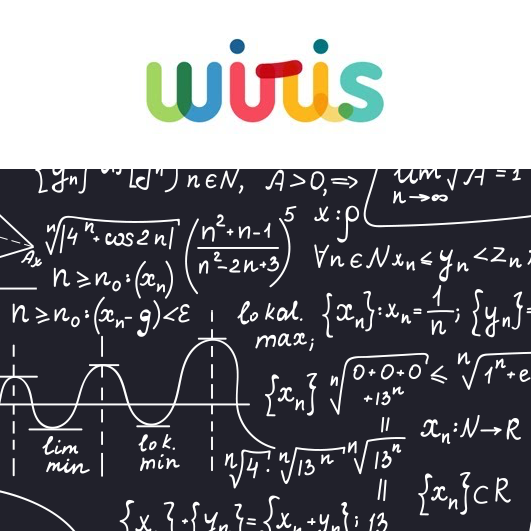 wiris
{yₙ}
n∈N, A>0,⇒
lim √A = 1
n→∞
ⁿ√|4ⁿ+cos2n|
(n²+n-1 / n²-2n+3)⁵
x:ρ
Aₓ
n≥n₀:(xₙ)
∀n∈N xₙ≤yₙ<zₙ
n≥n₀:(xₙ-g)<ε
lokal.
max,
{xₙ}:xₙ=1/n; {yₙ}=
{xₙ}
ⁿ√0+0+0+13ⁿ ≤ ⁿ√1ⁿ+e
lim
min
lok.
min
=
xₙ:N→R
ⁿ√4·ⁿ√13ⁿ
ⁿ√13ⁿ
=
{xₙ}⊂R
{xₙ}+{yₙ}={xₙ+yₙ};
13